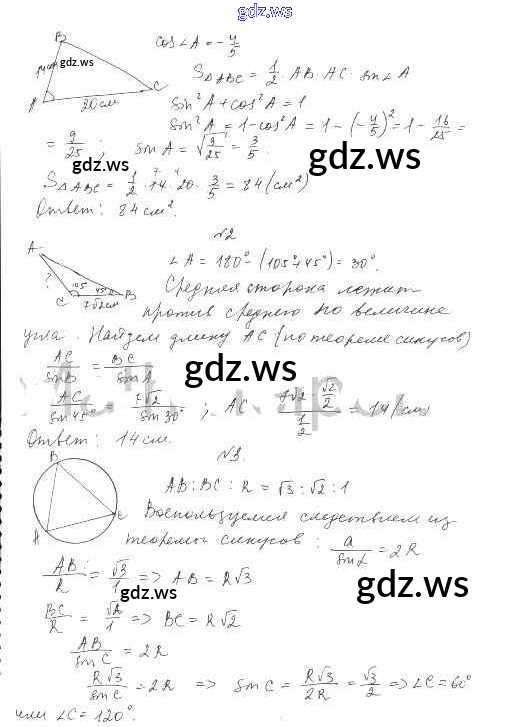 gdz.ws
B
14 см
A
20 см
C
cos∠A = -4/5
S△ABC = 1/2 · AB · AC · sin∠A
sin²A + cos²A = 1
sin²A = 1 - cos²A = 1 - (-4/5)² = 1 - 16/25 =
= 9/25; sin A = √9/25 = 3/5.
S△ABC = 1/2 · 14 · 20 · 3/5 = 84 (см²)
Ответ: 84 см².
№2
A
?
105°
45°
C
B
7√2 см
∠A = 180° - (105°+45°) = 30°.
Средняя сторона лежит
против среднего по величине
угла. Найдем длину AC (по теореме синусов)
AC/sinB = BC/sinA
AC/sin45° = 7√2/sin30°; AC = 7√2 · √2/2 / 1/2 = 14 (см)
Ответ: 14 см.
№3.
B
A
C
AB : BC : R = √3 : √2 : 1
Воспользуемся следствием из
теоремы синусов: a/sinα = 2R
AB/R = √3/1 => AB = R√3
BC/R = √2/1 => BC = R√2
AB/sin C = 2R
R√3/sin C = 2R => sin C = R√3/2R = √3/2 => ∠C = 60°
или ∠C = 120°.
gdz.ws
gdz.ws
gdz.ws
gdz.ws
gdz.ws
gdz.ws
gdz.ws